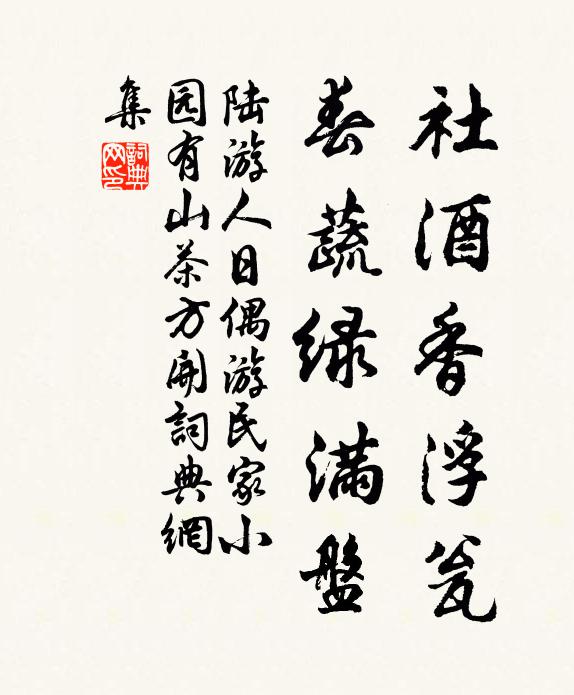 社酒香浮瓮
春蔬绿满盤
陆游人日偶游民家小
园有山茶方開詞典網
集
詞典
网印